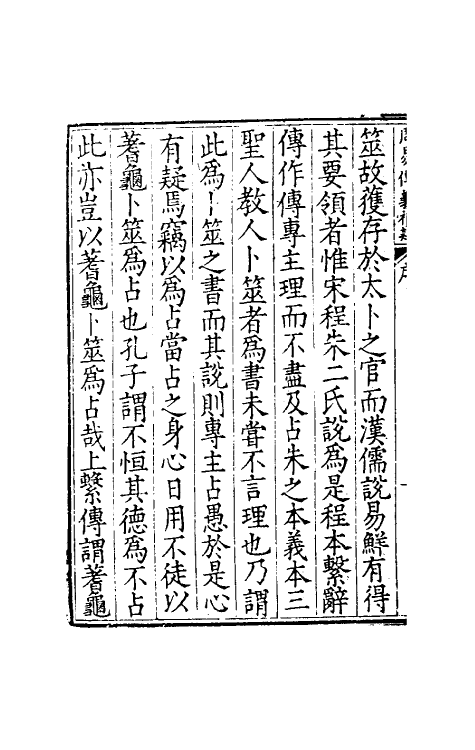 筮故獲存於太卜之官而漢儒説易鮮有得
其要領者惟宋程朱二氏説爲是程本繫辭
傳作傳專主理而不盡及占朱之本義本三
聖人教人卜筮者爲書未嘗不言理也乃謂
此爲卜筮之書而其説則專主占愚於是心
有疑焉竊以爲占當占之身心日用不徒以
蓍龜卜筮爲占也孔子謂不恒其德爲不占
此亦豈以蓍龜卜筮爲占哉上繫傳謂蓍龜